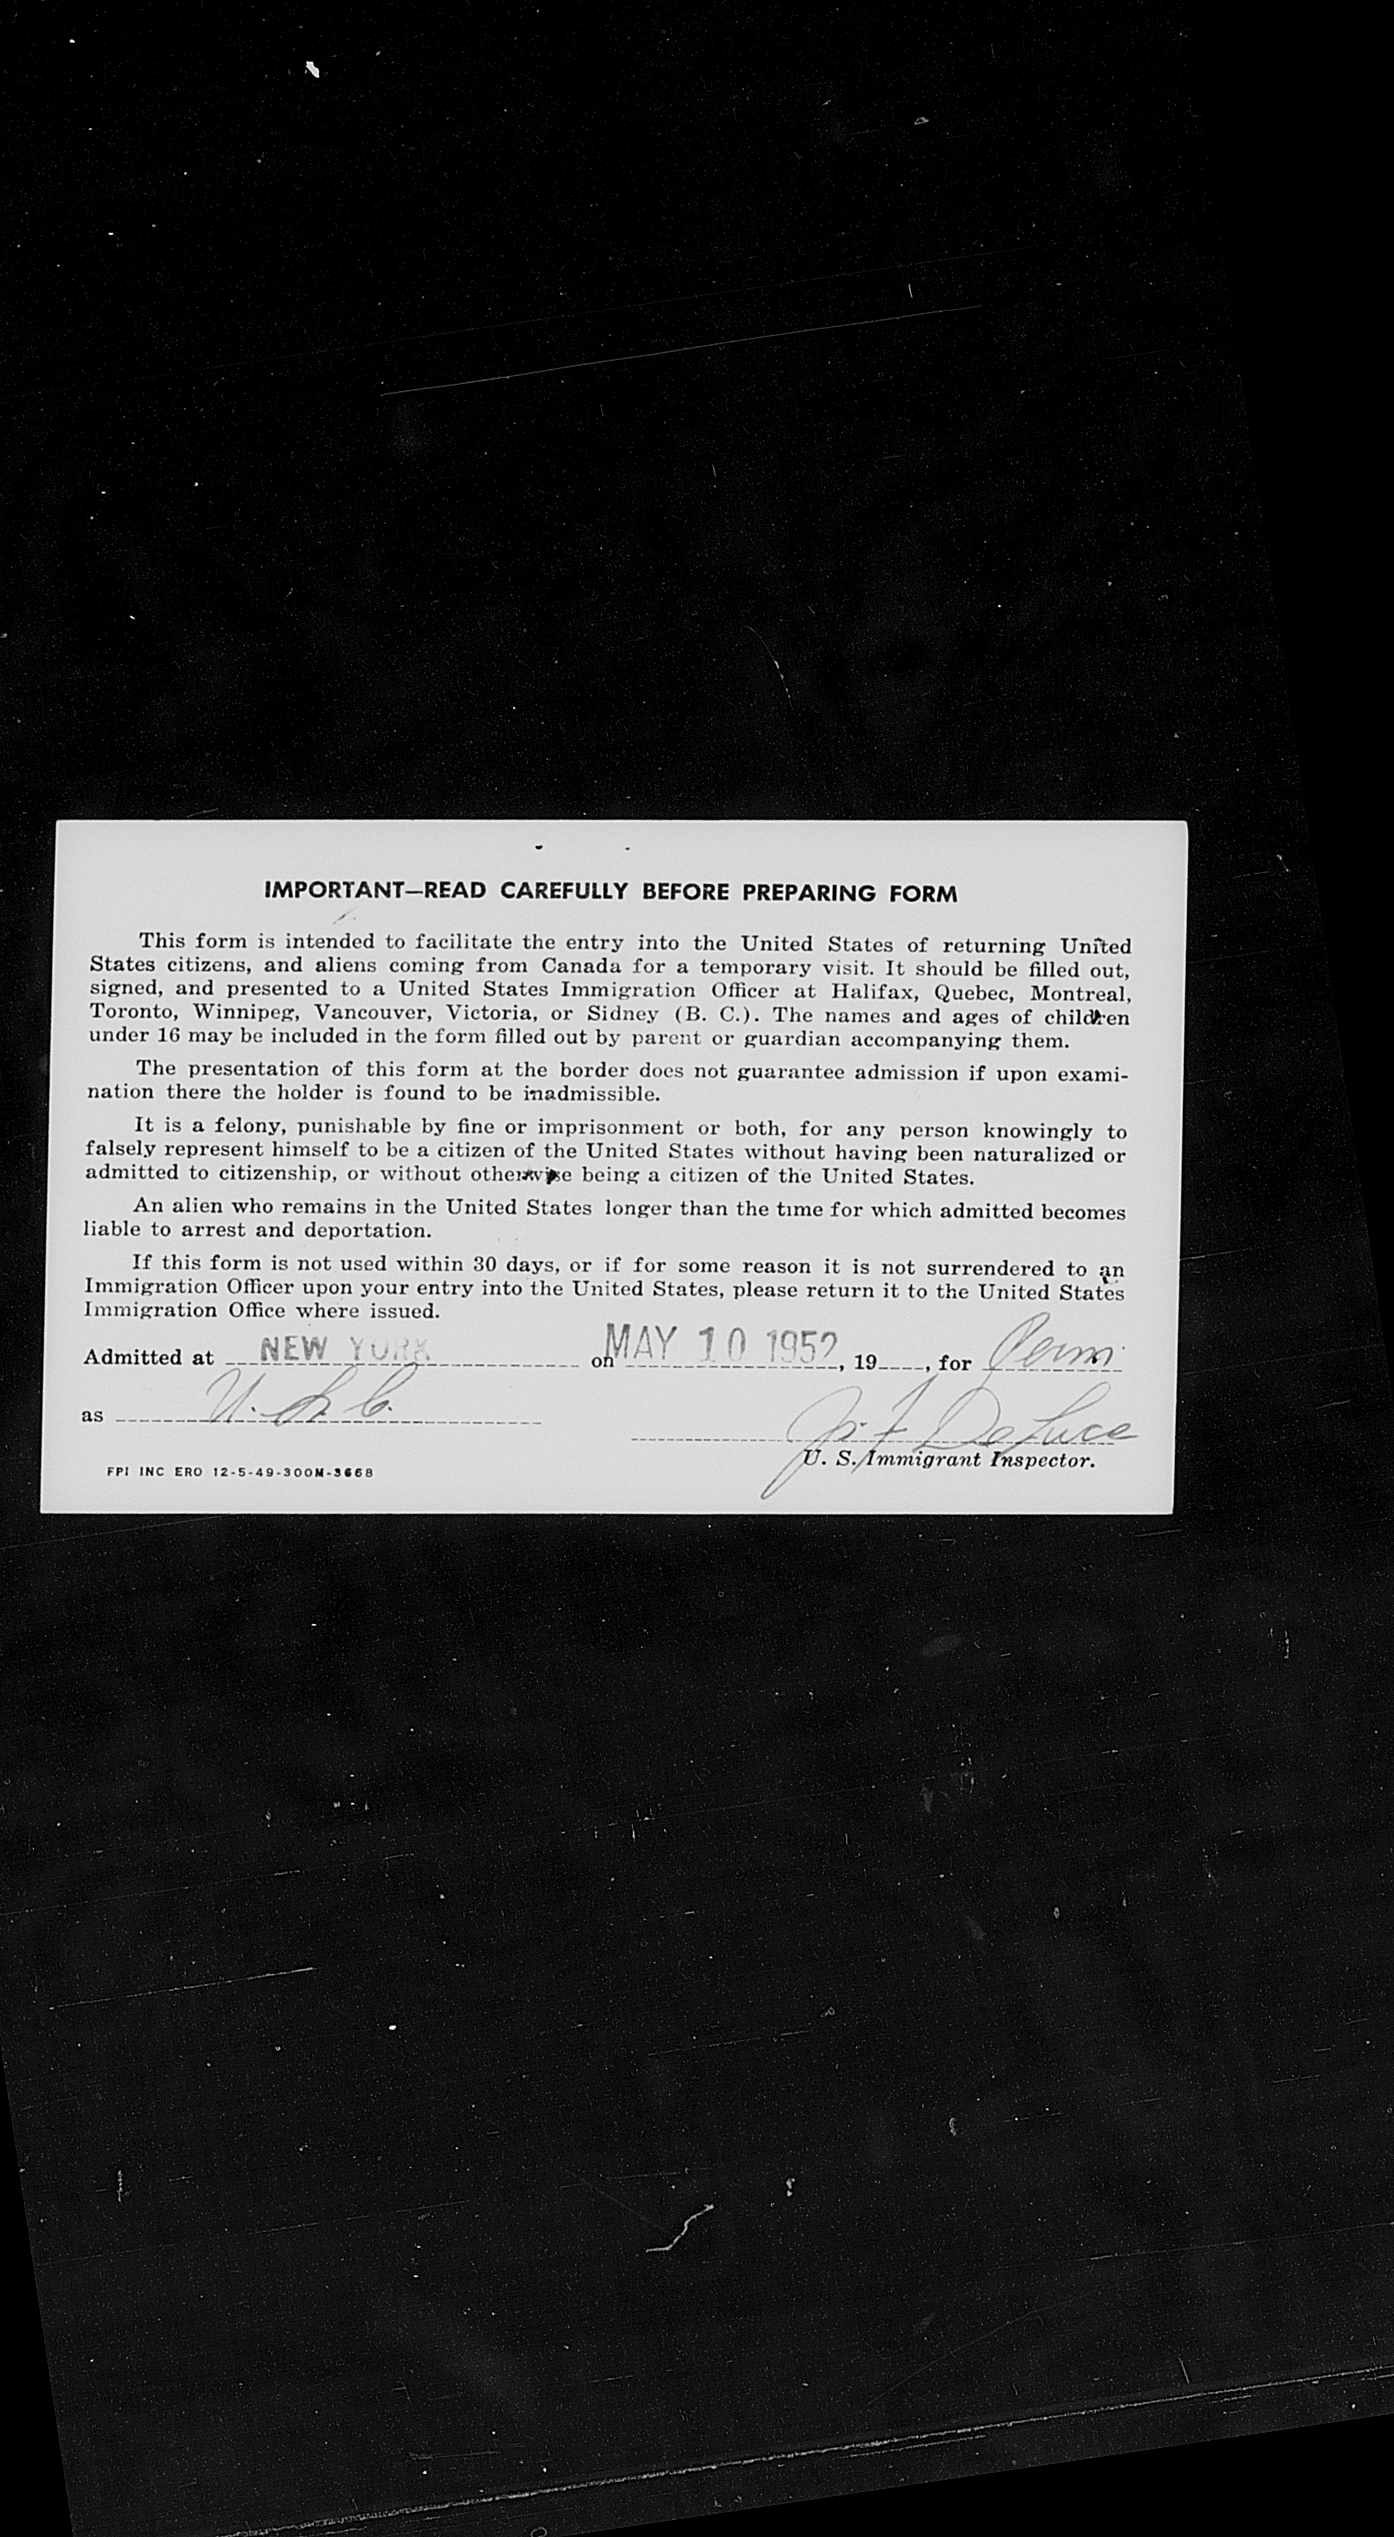 IMPORTANT—READ CAREFULLY BEFORE PREPARING FORM
This form is intended to facilitate the entry into the United States of returning United
States citizens, and aliens coming from Canada for a temporary visit. It should be filled out,
signed, and presented to a United States Immigration Officer at Halifax, Quebec, Montreal,
Toronto, Winnipeg, Vancouver, Victoria, or Sidney (B. C.). The names and ages of children
under 16 may be included in the form filled out by parent or guardian accompanying them.
The presentation of this form at the border does not guarantee admission if upon exami-
nation there the holder is found to be inadmissible.
It is a felony, punishable by fine or imprisonment or both, for any person knowingly to
falsely represent himself to be a citizen of the United States without having been naturalized or
admitted to citizenship, or without otherwise being a citizen of the United States.
An alien who remains in the United States longer than the time for which admitted becomes
liable to arrest and deportation.
If this form is not used within 30 days, or if for some reason it is not surrendered to an
Immigration Officer upon your entry into the United States, please return it to the United States
Immigration Office where issued.
Admitted at NEW YORK on MAY 10 1952, 19____, for Perm.
as U. S. C.
DeLuca
U. S. Immigrant Inspector.
FPI INC ERO 12-5-49-300M-3668